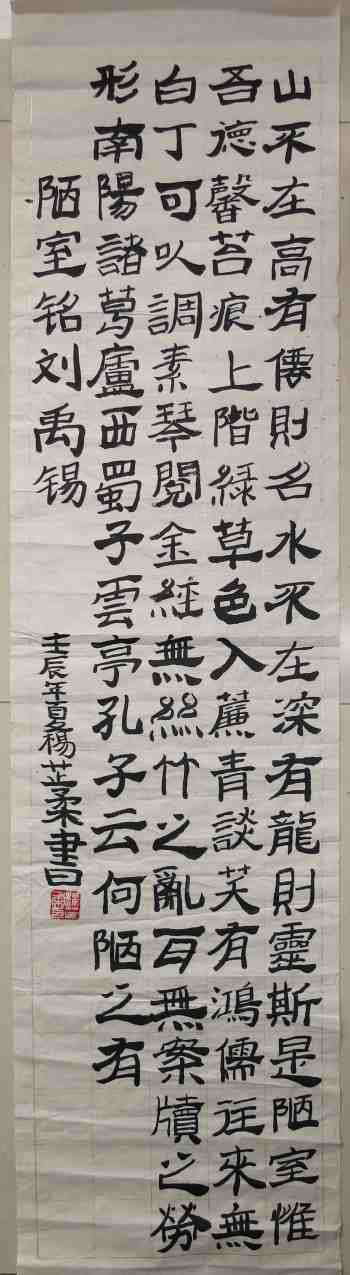 山不在高有僊則名水不在深有龍則靈斯是陋室惟
吾德馨苔痕上階綠草色入簾青談笑有鴻儒往來無
白丁可以調素琴閱金經無絲竹之亂耳無案牘之勞
形南陽諸葛廬西蜀子雲亭孔子云何陋之有
陋室铭刘禹锡
壬辰年夏楊芷柔書